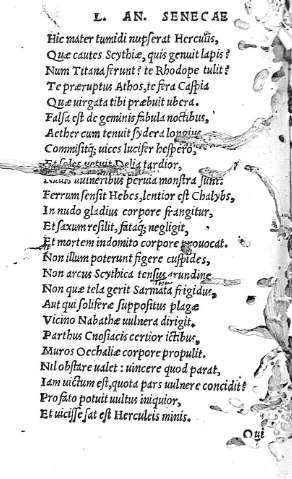 L. AN. SENECAE
Hic mater tumidi nupserat Herculis,
Quæ cautes Scythiæ, quis genuit lapis?
Num Titana ferunt? te Rhodope tulit?
Te præruptus Athos, te fera Caspia
Quæ uirgata tibi præbuit ubera.
Falsa est de geminis fabula noctibus,
Aether cum tenuit sydera longius
Commisitq́; uices lucifer hespero,
Et soles uetuit Delia tardior,
uulneribus peruia monstra sunt.
Ferrum sensit Hebes, lentior est Chalybs,
In nudo gladius corpore frangitur,
Et saxum resilit, fataq́; negligit,
Et mortem indomito corpore prouocat.
Non illum poterunt figere cuspides,
Non arcus Scythica tensus arundine
Non quæ tela gerit Sarmata frigidus,
Aut qui soliferæ suppositus plagæ
Vicino Nabathæ uulnera dirigit.
Parthus Cnosiacis certior ictibus,
Muros Oechaliæ corpore propulit.
Nil obstare ualet: uincere quod parat,
Iam uictum est, quota pars uulnere concidit?
Pro fato potuit uultus iniquior,
Et uicisse sat est Herculeis minis.
Qui